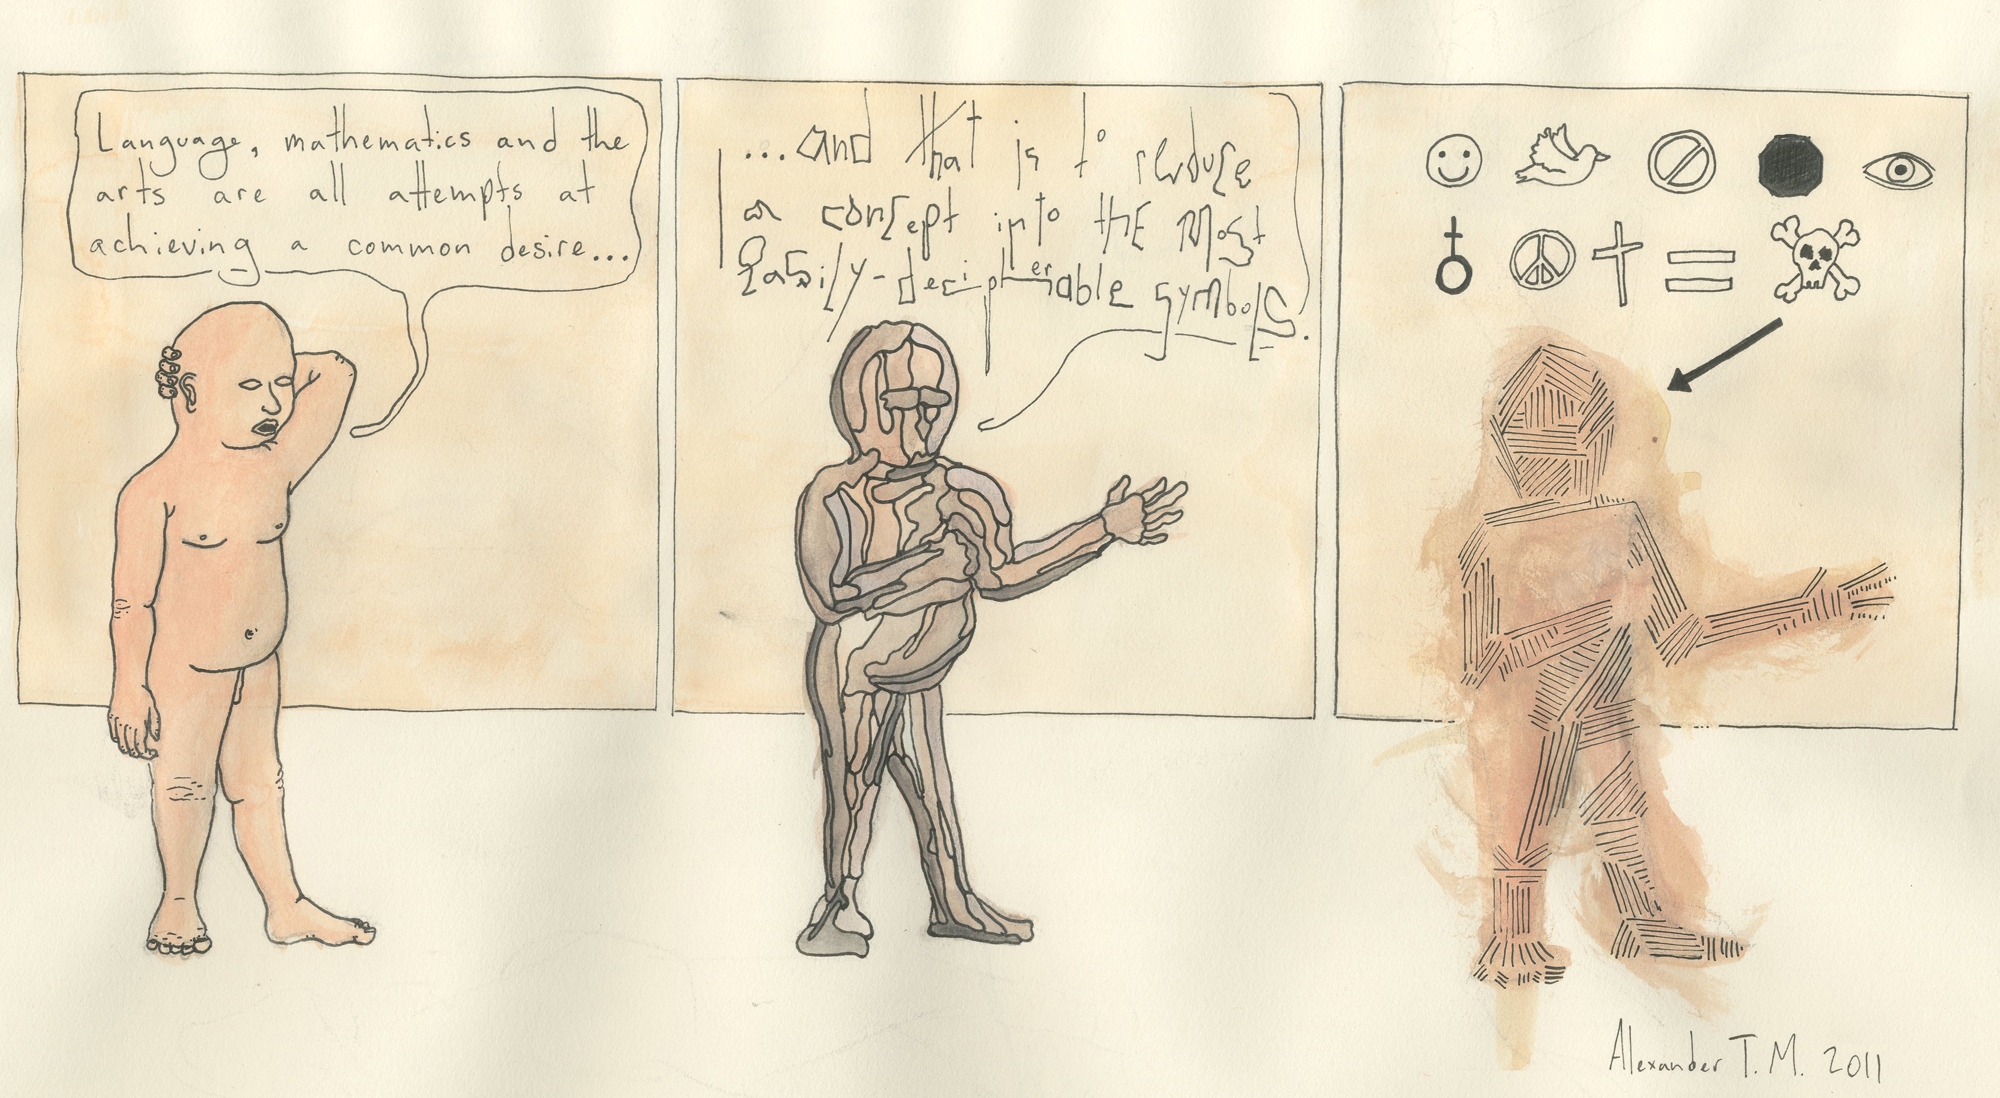 Language, mathematics and the
arts are all attempts at
achieving a common desire...
...and that is to reduce
a concept into the most
easily-decipherable symbols.
Alexander T. M. 2011